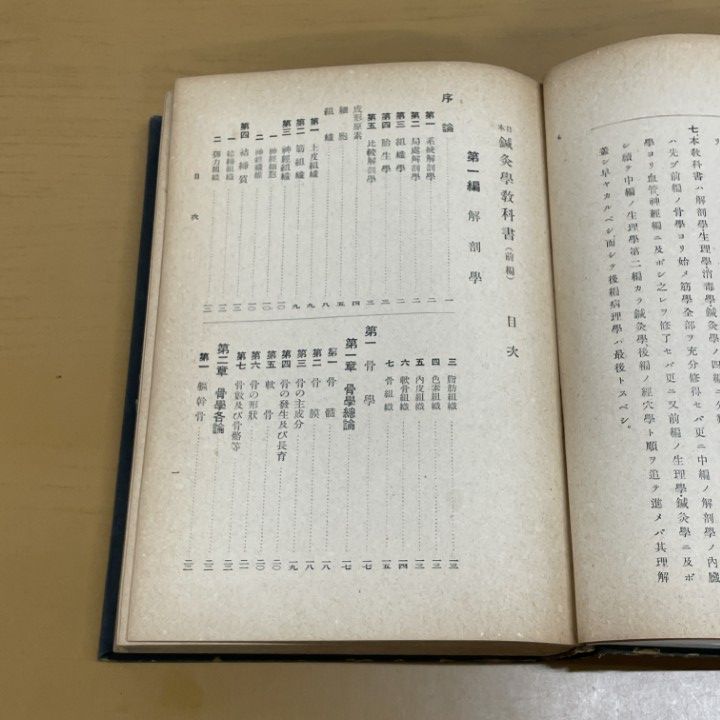 七、本教科書ハ解剖學生理學消毒學鍼灸學ノ四編ニ分
ハ先ヅ前編ノ骨學ヨリ始メ筋學全部ヲ充分修得セバ更ニ中編ノ解剖學ノ內臟
學ヨリ血管神經編ニ及ボシ之レヲ修了セバ更ニ又前編ノ生理學鍼灸學ニ及ボ
シ續テ中編ノ生理學第二編カラ鍼灸學後編ノ經穴學ト順ヲ追テ進メバ其理解
蓋シ早ヤカルベシ而シテ後編病理學ハ最後トスベシ。
日本 鍼灸學教科書(前編) 目次
第一編 解剖學
序論 一
第一 系統解剖學 二
第二 局處解剖學 二
第三 組織學 二
第四 胎生學 三
第五 比較解剖學 三
成形原素 四
細胞 五
組織 九
第一 上皮組織 九
第二 筋組織 九
第三 神經組織 一〇
一 神經細胞 一〇
二 神經纖維
第四 結締質
一 結締組織
二 彈力組織
三 脂肪組織 一三
四 色素組織 一三
五 內皮組織 一三
六 軟骨組織 一四
七 骨組織 一五
第一 骨學 一七
第一章 骨學總論 一七
第一 骨髓 一八
第二 骨膜 一八
第三 骨の主成分 一九
第四 骨の發生及び長育 二〇
第五 軟骨 二〇
第六 骨の形狀 二〇
第七 骨數及び骨骼等 二一
第二章 骨學各論
第一 軀幹骨
目次
一